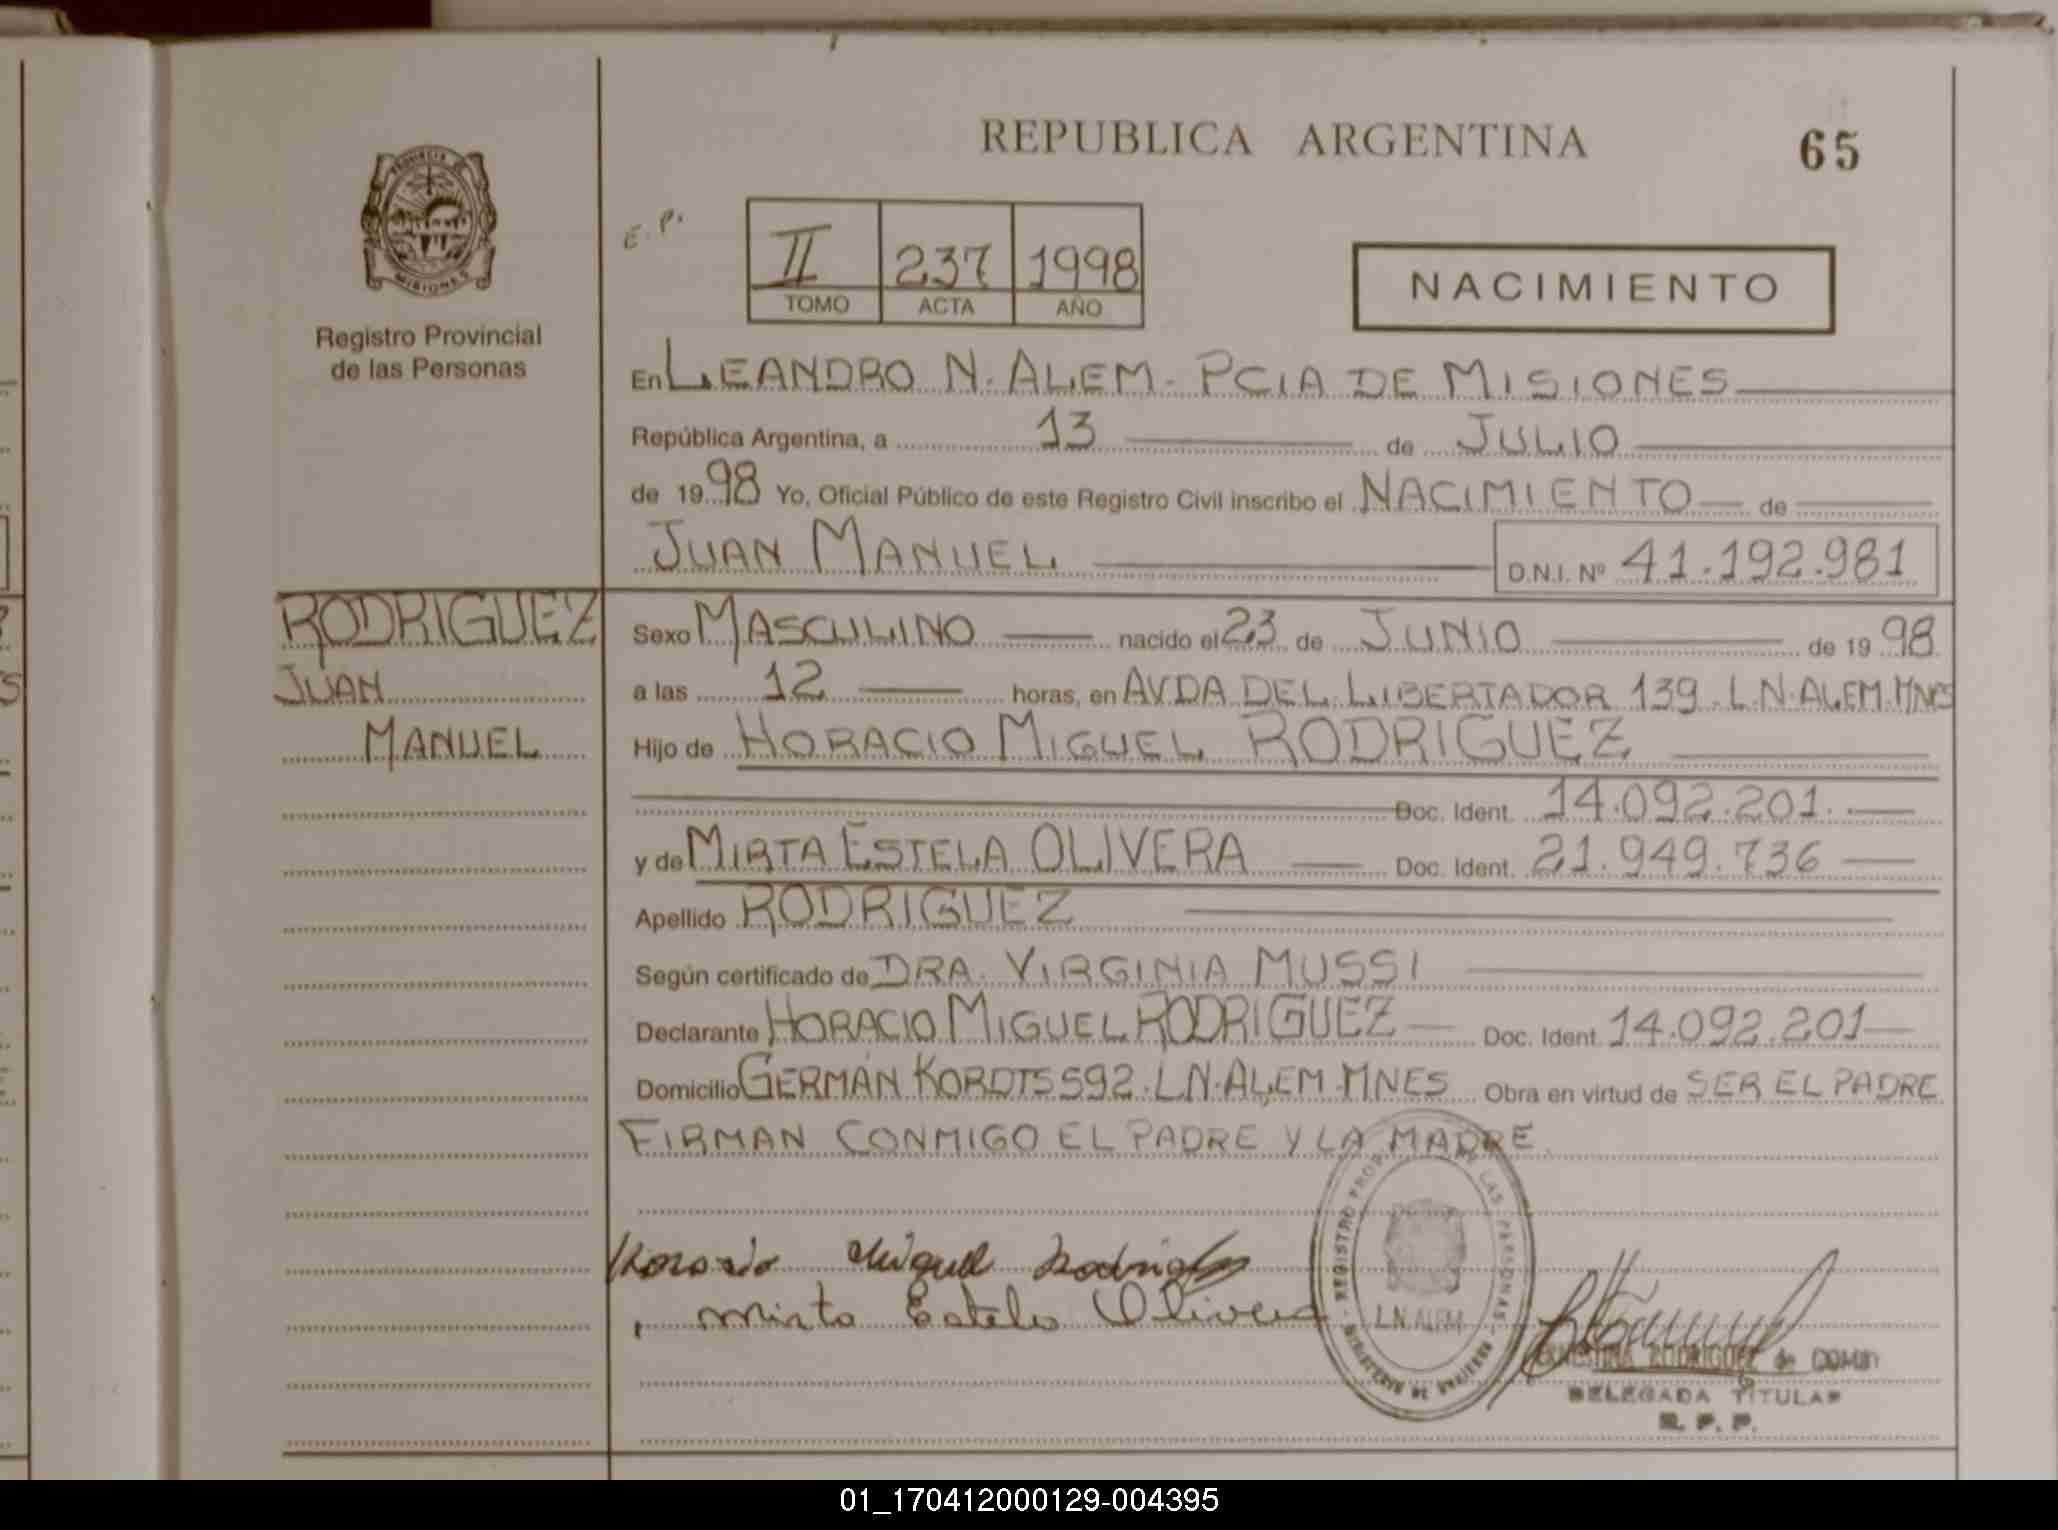 REPUBLICA ARGENTINA
65
PROVINCIA DE
MISIONES
Registro Provincial
de las Personas
E. P.
II 237 1998
TOMO ACTA AÑO
NACIMIENTO
En LEANDRO N. ALEM - PCIA DE MISIONES
República Argentina, a 13 de JULIO
de 1998 Yo, Oficial Público de este Registro Civil inscribo el NACIMIENTO de
JUAN MANUEL D.N.I. Nº 41.192.981
RODRIGUEZ
JUAN
MANUEL
Sexo MASCULINO nacido el 23 de JUNIO de 1998
a las 12 horas, en AVDA DEL LIBERTADOR 139. L.N. ALEM. MNES
Hijo de HORACIO MIGUEL RODRIGUEZ
Doc. Ident. 14.092.201.
y de MIRTA ESTELA OLIVERA Doc. Ident. 21.949.736
Apellido RODRIGUEZ
Según certificado de DRA. VIRGINIA MUSSI
Declarante HORACIO MIGUEL RODRIGUEZ Doc. Ident. 14.092.201
Domicilio GERMÁN KORDTS 592. L.N. ALEM. MNES Obra en virtud de SER EL PADRE
FIRMAN CONMIGO EL PADRE Y LA MADRE.
Horacio Miguel Rodriguez
Mirta Estela Olivera
REGISTRO PROV. DE LAS PERSONAS
L.N. ALEM
MINISTERIO DE GOBIERNO
RODRIGUEZ de
DELEGADA TITULAR
R. P. P.
01_170412000129-004395